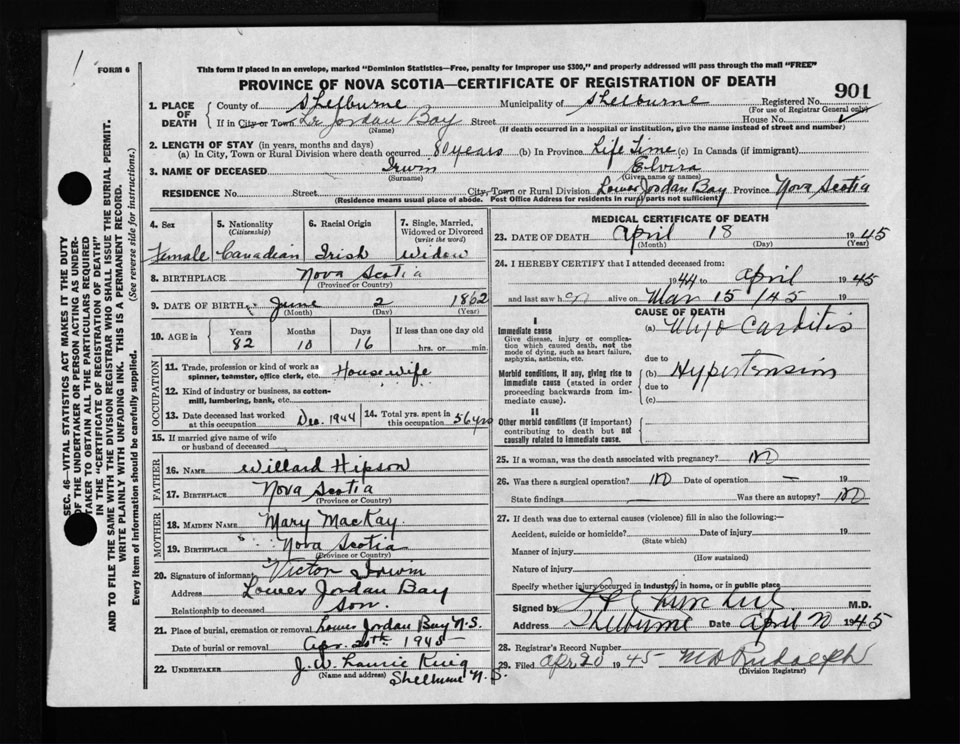 1
FORM 6
This form if placed in an envelope, marked "Dominion Statistics—Free, penalty for improper use $300," and properly addressed will pass through the mail "FREE"
PROVINCE OF NOVA SCOTIA—CERTIFICATE OF REGISTRATION OF DEATH
901
1. PLACE OF DEATH
County of Shelburne Municipality of Shelburne Registered No.
(For use of Registrar General only)
If in City or Town Lr Jordan Bay Street House No.
(Name) (If death occurred in a hospital or institution, give the name instead of street and number)
2. LENGTH OF STAY (in years, months and days)
(a) In City, Town or Rural Division where death occurred 80 years (b) In Province Life Time (c) In Canada (if immigrant)
3. NAME OF DECEASED Irwin Elvira
(Surname) (Given name or names)
RESIDENCE No Street City, Town or Rural Division Lower Jordan Bay Province Nova Scotia
(Residence means usual place of abode. Post Office Address for residents in rural parts not sufficient)
4. Sex
Female
5. Nationality
(Citizenship)
Canadian
6. Racial Origin
Irish
7. Single, Married, Widowed or Divorced
(write the word)
Widow
8. BIRTHPLACE Nova Scotia
(Province or Country)
9. DATE OF BIRTH June 2 1862
(Month) (Day) (Year)
10. AGE in
Years Months Days If less than one day old
82 10 16 hrs. or min.
OCCUPATION
11. Trade, profession or kind of work as spinner, teamster, office clerk, etc. Housewife
12. Kind of industry or business, as cotton-mill, lumbering, bank, etc.
13. Date deceased last worked at this occupation Dec. 1944
14. Total yrs. spent in this occupation 56 yrs
15. If married give name of wife or husband of deceased
FATHER
16. NAME Willard Hipson
17. BIRTHPLACE Nova Scotia
(Province or Country)
MOTHER
18. MAIDEN NAME Mary MacKay.
19. BIRTHPLACE Nova Scotia
(Province or Country)
20. Signature of informant Victor Irwin
Address Lower Jordan Bay
Relationship to deceased Son.
21. Place of burial, cremation or removal Lower Jordan Bay N.S.
Date of burial or removal Apr. 20th 1945
22. UNDERTAKER J. W. Laurie King
(Name and address) Shelburne N.S.
MEDICAL CERTIFICATE OF DEATH
23. DATE OF DEATH April 18 1945
(Month) (Day) (Year)
24. I HEREBY CERTIFY that I attended deceased from:
1944 to April 1945
and last saw her alive on Mar 15 /45 19
CAUSE OF DEATH
I
Immediate cause
Give disease, injury or complication which caused death, not the mode of dying, such as heart failure, asphyxia, asthenia, etc.
(a) Myo Carditis
due to
Morbid conditions, if any, giving rise to immediate cause (stated in order proceeding backwards from immediate cause).
(b) Hypertension
due to
(c)
II
Other morbid conditions (if important) contributing to death but not causally related to immediate cause.
25. If a woman, was the death associated with pregnancy? no
26. Was there a surgical operation? no Date of operation — 19
State findings Was there an autopsy? no
27. If death was due to external causes (violence) fill in also the following:—
Accident, suicide or homicide? Date of injury 19
(State which)
Manner of injury
(How sustained)
Nature of injury
Specify whether injury occurred in industry, in home, or in public place
Signed by M.D.
Address Shelburne Date April 20 1945
28. Registrar's Record Number
29. Filed Apr 20 1945 M D Rudolph
(Division Registrar)
SEC. 46—VITAL STATISTICS ACT MAKES IT THE DUTY OF THE UNDERTAKER OR PERSON ACTING AS UNDERTAKER TO OBTAIN ALL THE PARTICULARS REQUIRED IN THE "CERTIFICATE OF REGISTRATION OF DEATH"
AND TO FILE THE SAME WITH THE DIVISION REGISTRAR WHO SHALL ISSUE THE BURIAL PERMIT.
WRITE PLAINLY WITH UNFADING INK. THIS IS A PERMANENT RECORD.
Every item of information should be carefully supplied. (See reverse side for instructions.)